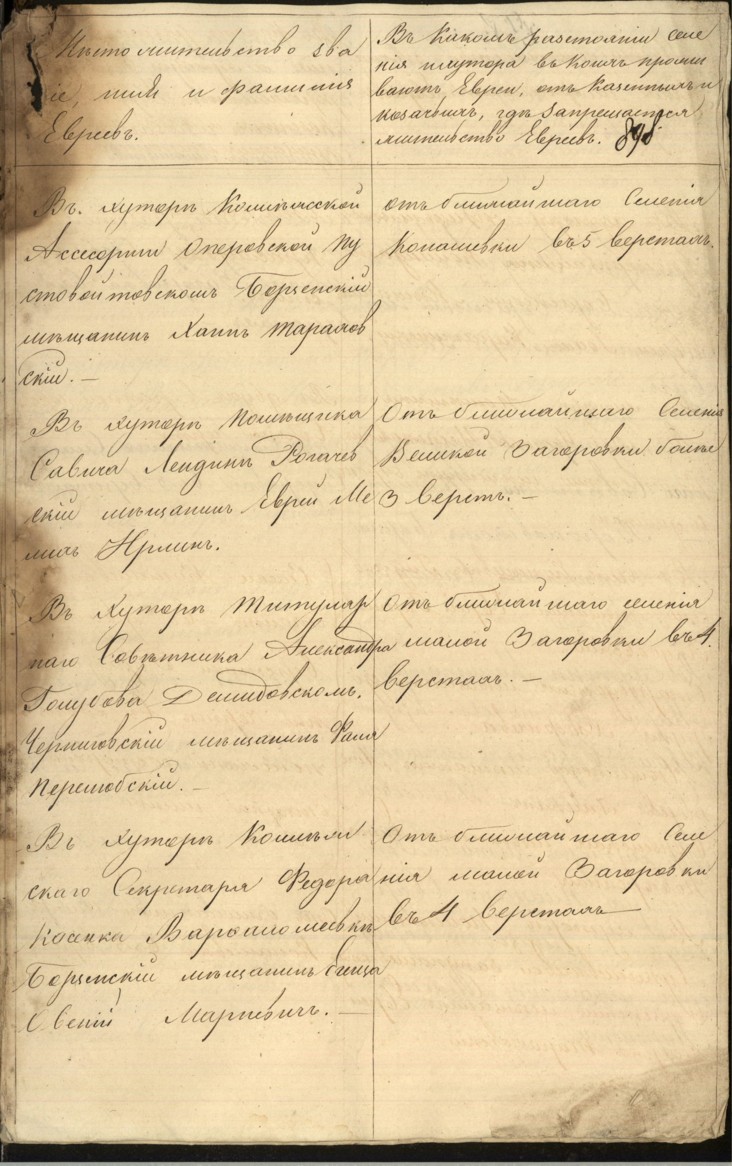 Мѣсто жительство зва
іе, имя и фамилія
Евреевъ.
Въ какомъ разстояніи селе
нія и хутора въ коихъ прожи
ваютъ Евреи, отъ казенныхъ и
козачьихъ, гдѣ запрещается
жительство Евреевъ. 898
Въ хуторѣ Коллежской
Ассесорши Оперовской Пу
стовойтовскомъ Борзенскій
мѣщанинъ Хаимъ Тарахов
скій. —
отъ ближайшаго Селенія
Копашевки въ 5 верстахъ.
Въ хуторѣ помѣщика
Савича Рогачев
скій мѣщанинъ Еврей
Отъ ближайшаго Селенія
Великой Загоровки более
3 верстъ. —
Въ хуторѣ Титуляр
наго Совѣтника Александра
Голубова Демидовскомъ,
Черниговскій мѣщанинъ
Перелюбскій. —
Отъ ближайшаго селенія
малой Загоровки въ 4.
верстахъ. —
Въ хуторѣ Коллеж
скаго Секретаря Федора
Косенка Варфоломеевкѣ
Борзенскій мѣщанинъ
Маркевичъ. —
Отъ ближайшаго Селе
нія малой Загоровки
въ 4 верстахъ